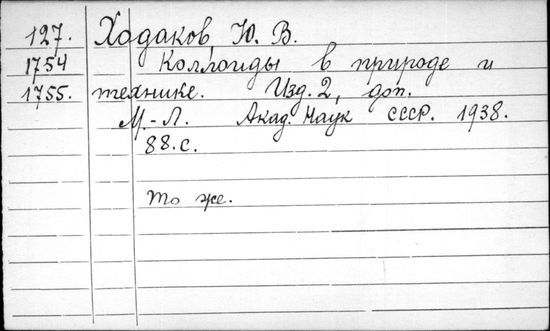 127. Ходаков Ю. В.
1754 Коллоиды в природе и
1755. технике. Изд. 2, доп.
М.-Л. Акад. Наук СССР. 1938.
88.с.
То же.